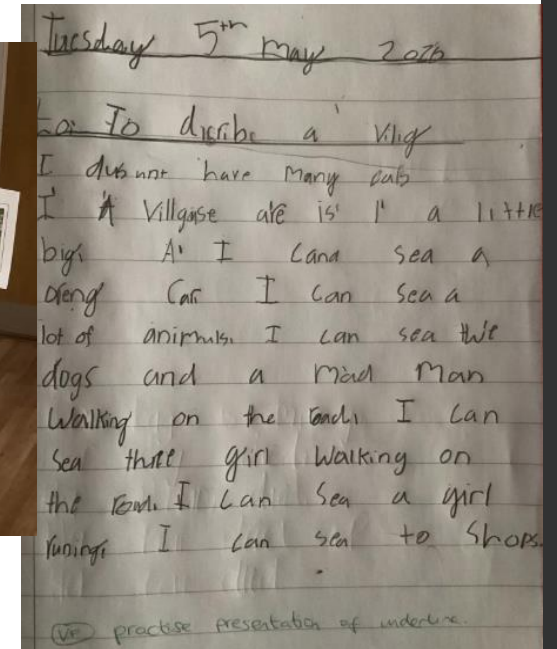 Tuesday 5th May 2026
Lo: To discribe a Vilig
I dus not have many cats
I A Villgise are is I' a little
big. A. I cand sea a
oreng Car I can sea a
lot of animuls. I can sea thre
dogs and a mad man
Walking on the road. I can
sea three girl walking on
the road. I can sea a girl
runing. I can sea to shops.
VF practise presentation of underline.